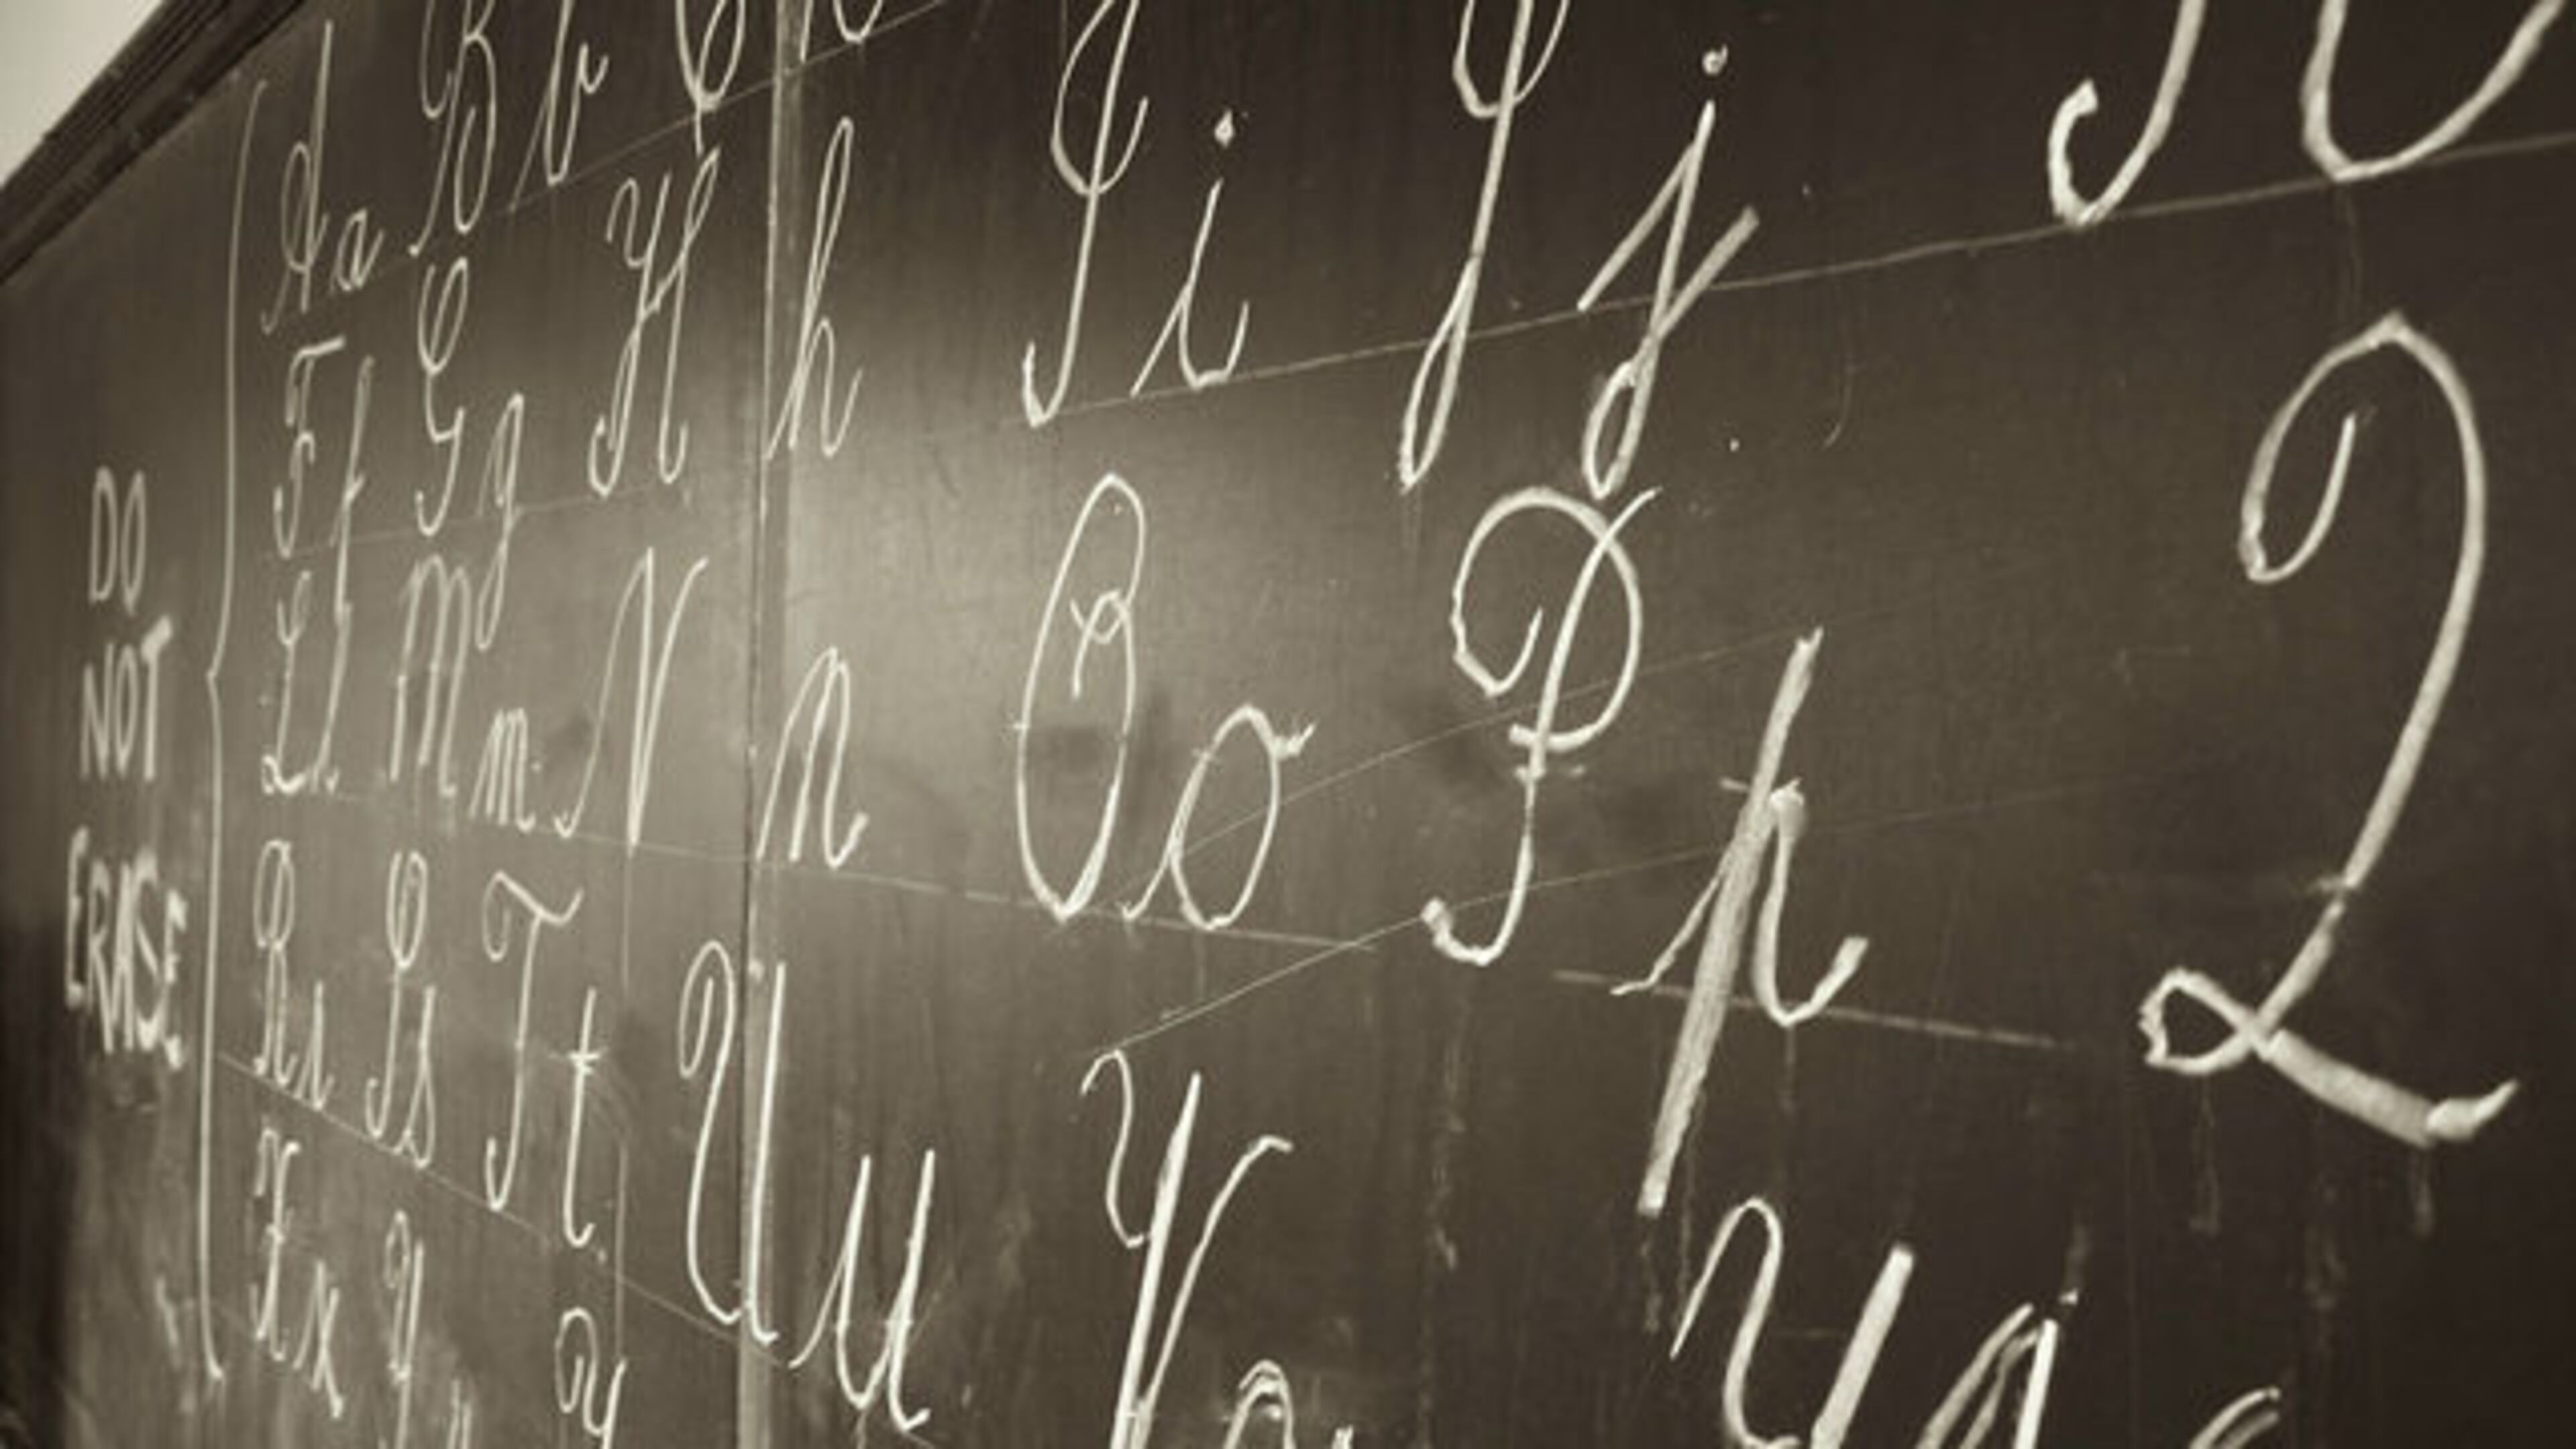 DO
NOT
ERASE
A a B b C
F f G g H h I i J j K
L l M m N n O o P p Q
R r S s T t U u V
X x y